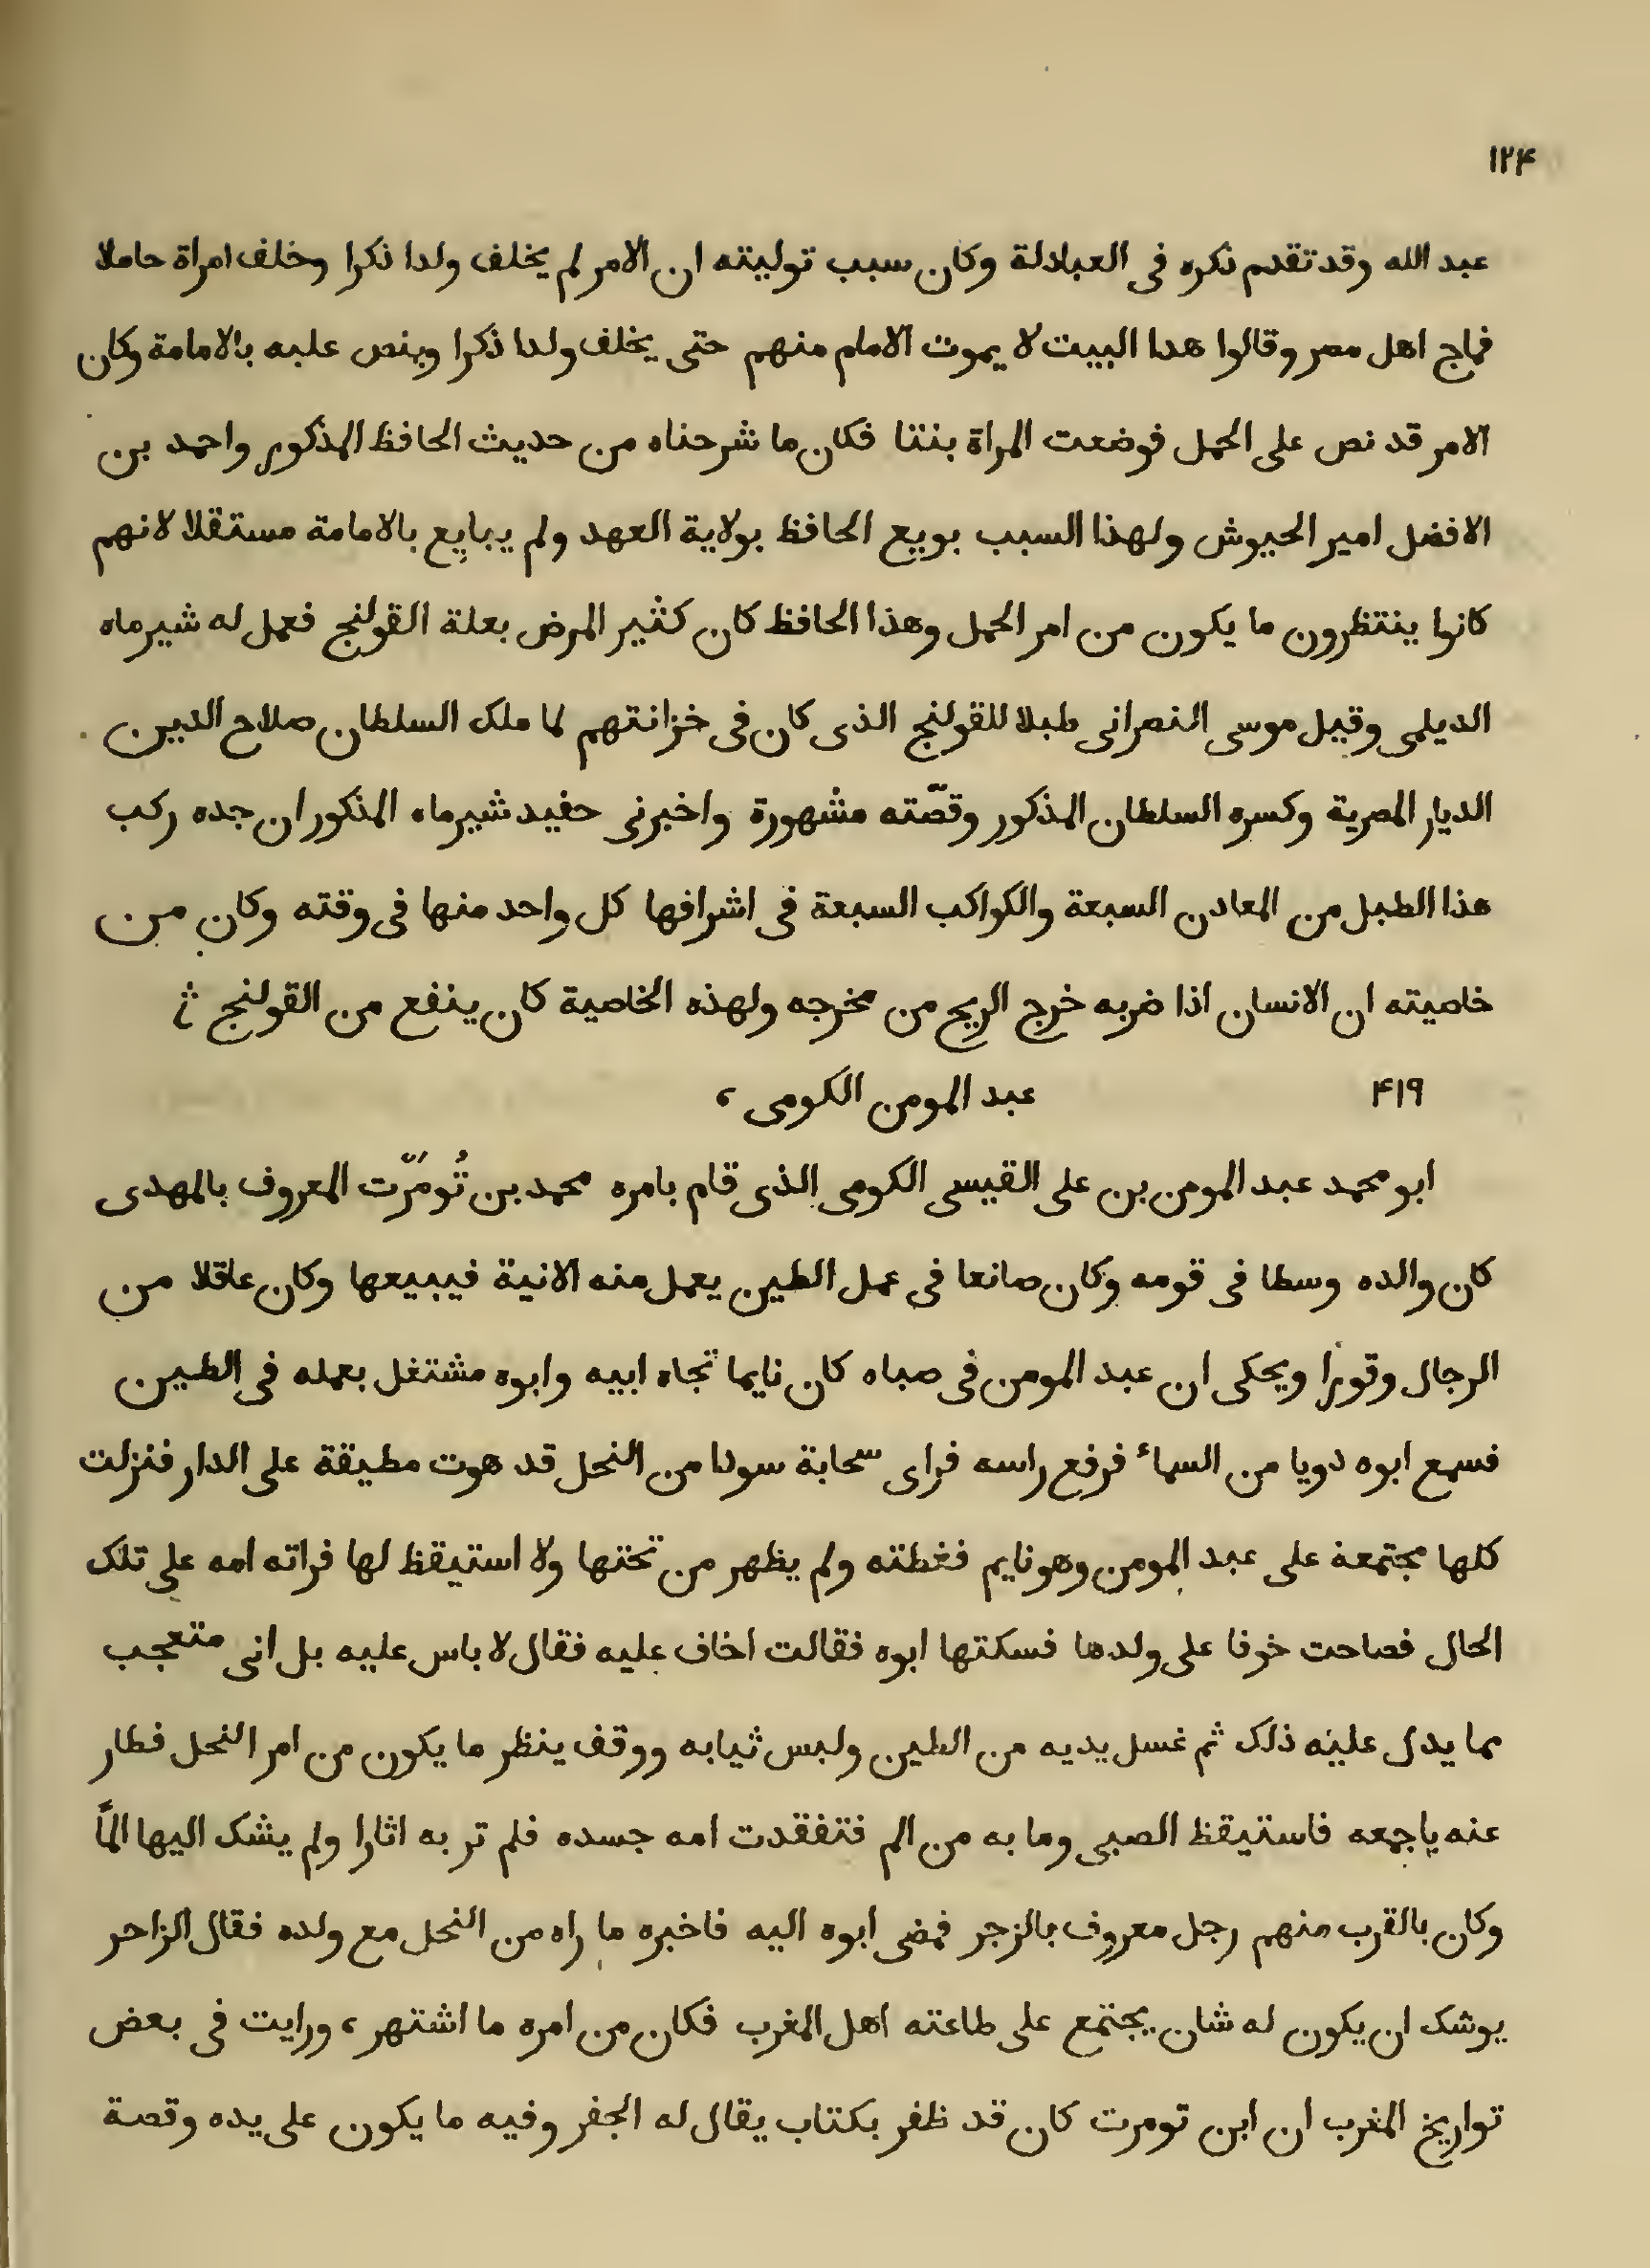 ۱۲۴
عبد الله وقد تقدم ذكره فى العبادلة وكان سبب توليته ان الامر لم يخلف ولدا ذكرا وخلف امراة حاملا
فماج اهل مصر وقالوا هدا البيت لا يموت الامام منهم حتى يخلف ولدا ذكرا وينص عليه بالامامة وكان
الامر قد نص على الحمل فوضعت المراة بنتا فكان ما شرحناه من حديث الحافظ المذكور واحمد بن
الافضل امير الجيوش ولهذا السبب بويع الحافظ بولاية العهد ولم يبايع بالامامة مستقلا لانهم
كانوا ينتظرون ما يكون من امر الحمل وهذا الحافظ كان كثير المرض بعلة القولنج فعمل له شيرماه
الديلمى وقيل موسى النصرانى طبلا للقولنج الذى كان فى خزانتهم لما ملك السلطان صلاح الدين
الديار المصرية وكسره السلطان المذكور وقصّته مشهورة واخبرنى حفيد شيرماه المذكور ان جده ركب
هذا الطبل من المعادن السبعة والكواكب السبعة فى اشرافها كل واحد منها فى وقته وكان من
خاصيته ان الانسان اذا ضربه خرج الريح من مخرجه ولهذه الخاصية كان ينفع من القولنج ؞
۴۱۹ عبد المومن الكومى ،
ابو محمد عبد المومن بن على القيسى الكومى الذى قام بامره محمد بن تُومَرْت المعروف بالمهدى
كان والده وسطا فى قومه وكان صانعا فى عمل الطين يعمل منه الانية فيبيعها وكان عاقلا من
الرجال وقورا ويحكى ان عبد المومن فى صباه كان نايما تجاه ابيه وابوه مشتغل بعمله فى الطين
فسمع ابوه دويا من السماء فرفع راسه فراى سحابة سودا من النحل قد هوت مطيقة على الدار فنزلت
كلها مجتمعة على عبد المومن وهو نايم فغطته ولم يظهر من تحتها ولا استيقظ لها فراته امه على تلك
الحال فصاحت خوفا على ولدها فسكتها ابوه فقالت اخاف عليه فقال لا باس عليه بل انى متعجب
مما يدل عليه ذلك ثم غسل يديه من الطين ولبس ثيابه ووقف ينظر ما يكون من امر النحل فطار
عنه باجمعه فاستيقظ الصبى وما به من الم فتفقدت امه جسده فلم تر به اثارا ولم يشك اليها المًا
وكان بالقرب منهم رجل معروف بالزجر فمضى ابوه اليه فاخبره ما راه من النحل مع ولده فقال الزاجر
يوشك ان يكون له شان يجتمع على طاعته اهل المغرب فكان من امره ما اشتهر ، ورايت فى بعض
تواريخ المغرب ان ابن تومرت كان قد ظفر بكتاب يقال له الجفر وفيه ما يكون على يده وقصة